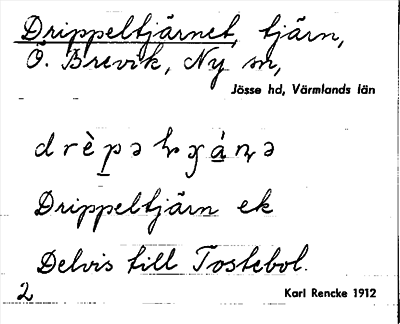 Drippeltjärnet, tjärn,
Ö. Brevik, Ny sn,
Jösse hd, Värmlands län
Drippeltjärn ek
Delvis till Tostebol.
2
Karl Rencke 1912